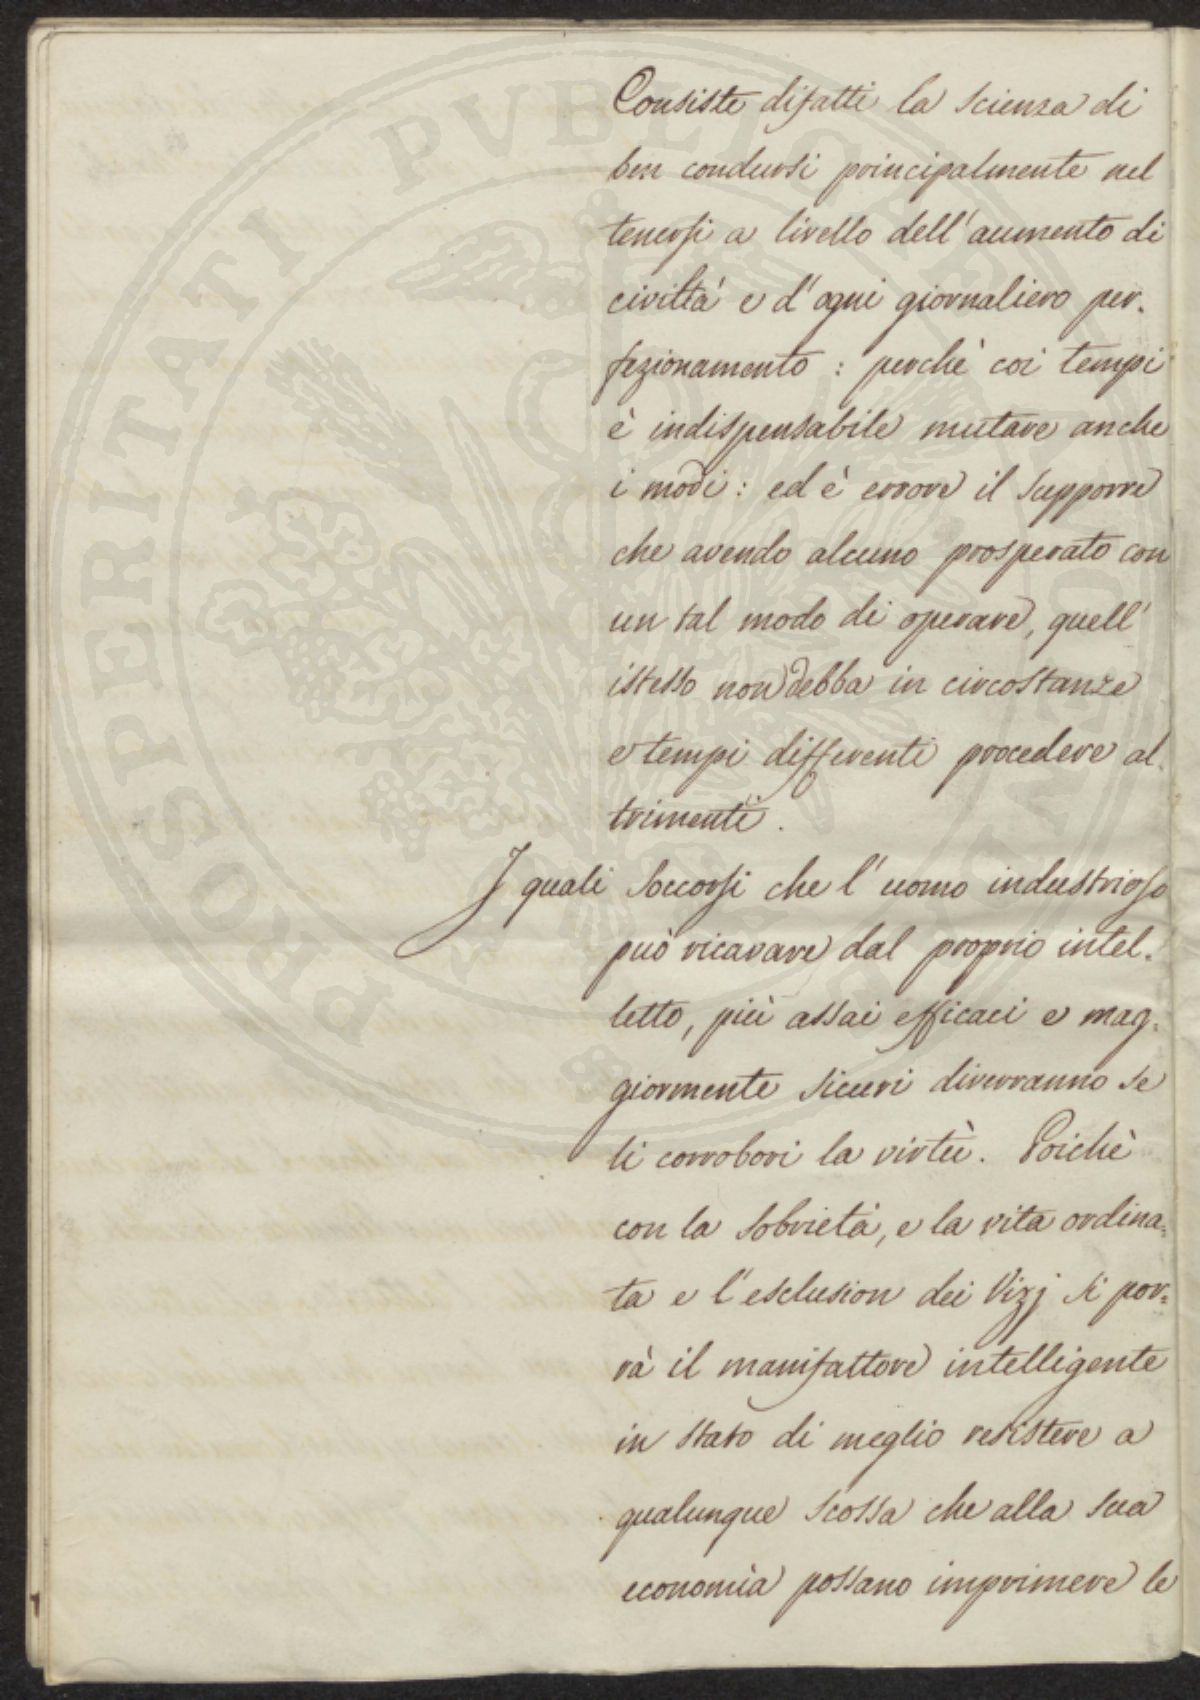 Consiste difatti la scienza di
ben condursi principalmente nel
tenersi a livello dell'aumento di
civiltà e d'ogni giornaliero per-
fezionamento : perchè coi tempi
è indispensabile mutare anche
i modi : ed è errore il supporre
che avendo alcuno prosperato con
un tal modo di operare, quell'
istesso non debba in circostanze
e tempi differenti procedere al-
trimenti.
I quali soccorsi che l'uomo industrioso
può ricavare dal proprio intel-
letto, più assai efficaci e mag-
giormente sicuri diverranno se
li corrobori la virtù. Poichè
con la sobrietà, e la vita ordina=
ta e l'esclusion dei Vizj si por=
rà il manifattore intelligente
in stato di meglio resistere a
qualunque scossa che alla sua
economia possano imprimere le
PROSPERITATI PVBLICAE